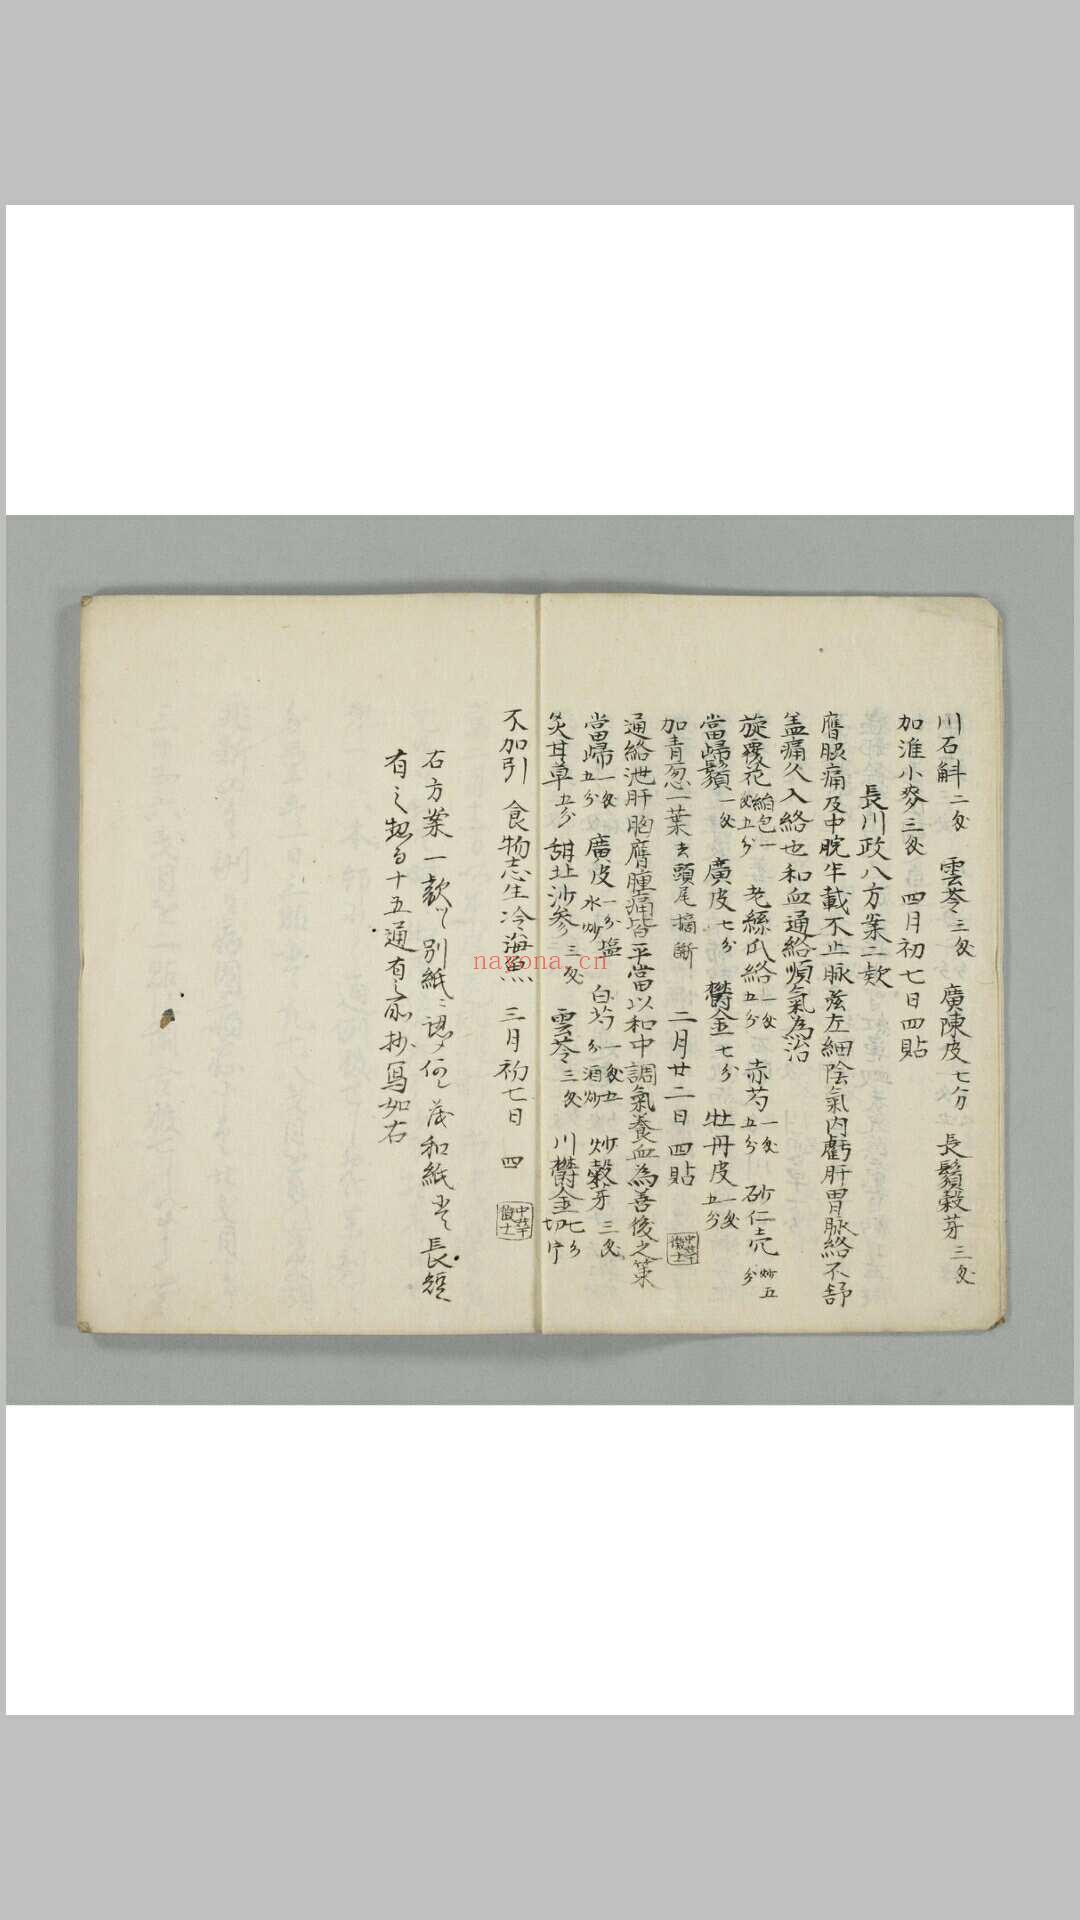 川石斛二戔 雲苓三戔 廣陳皮七分 長鬚穀芽三戔
加淮小麥三戔 四月初七日四貼
長川政八方案二欵
膺脹痛及中脘半載不止脉茲左細陰氣內虧肝胃脉絡不舒
盖痛久入絡也和血通絡順氣為治
旋覆花絹包一戔五分 老絲瓜絡一戔五分 赤芍一戔五分 砂仁壳炒五分
當歸鬚一戔 廣皮七分 欝金七分 牡丹皮一戔五分
加青葱一葉去頭尾摘斷 二月廿二日四貼
通絡泄肝胸膺腫痛皆平當以和中調氣養血為善後之策
當歸一戔五分 廣皮一分塩水炒 白芍一戔五分酒炒 炒穀芽三戔
炙甘草五分 甜北沙參三戔 雲苓三戔 川欝金七分切片
不加引 食物忌生冷海魚 三月初七日 四
右方案一欵 別紙ニ認 和紙 長短
有之 十五通有之 抄寫如右
nayona.cn